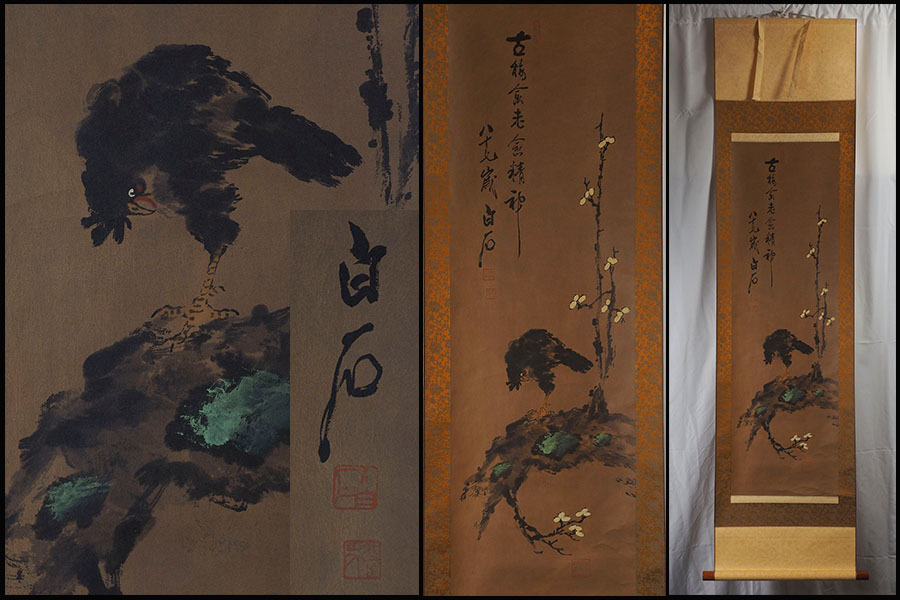 白石
古梅愈老愈精神
八十九歲白石
古梅愈老愈精神
八十九歲白石